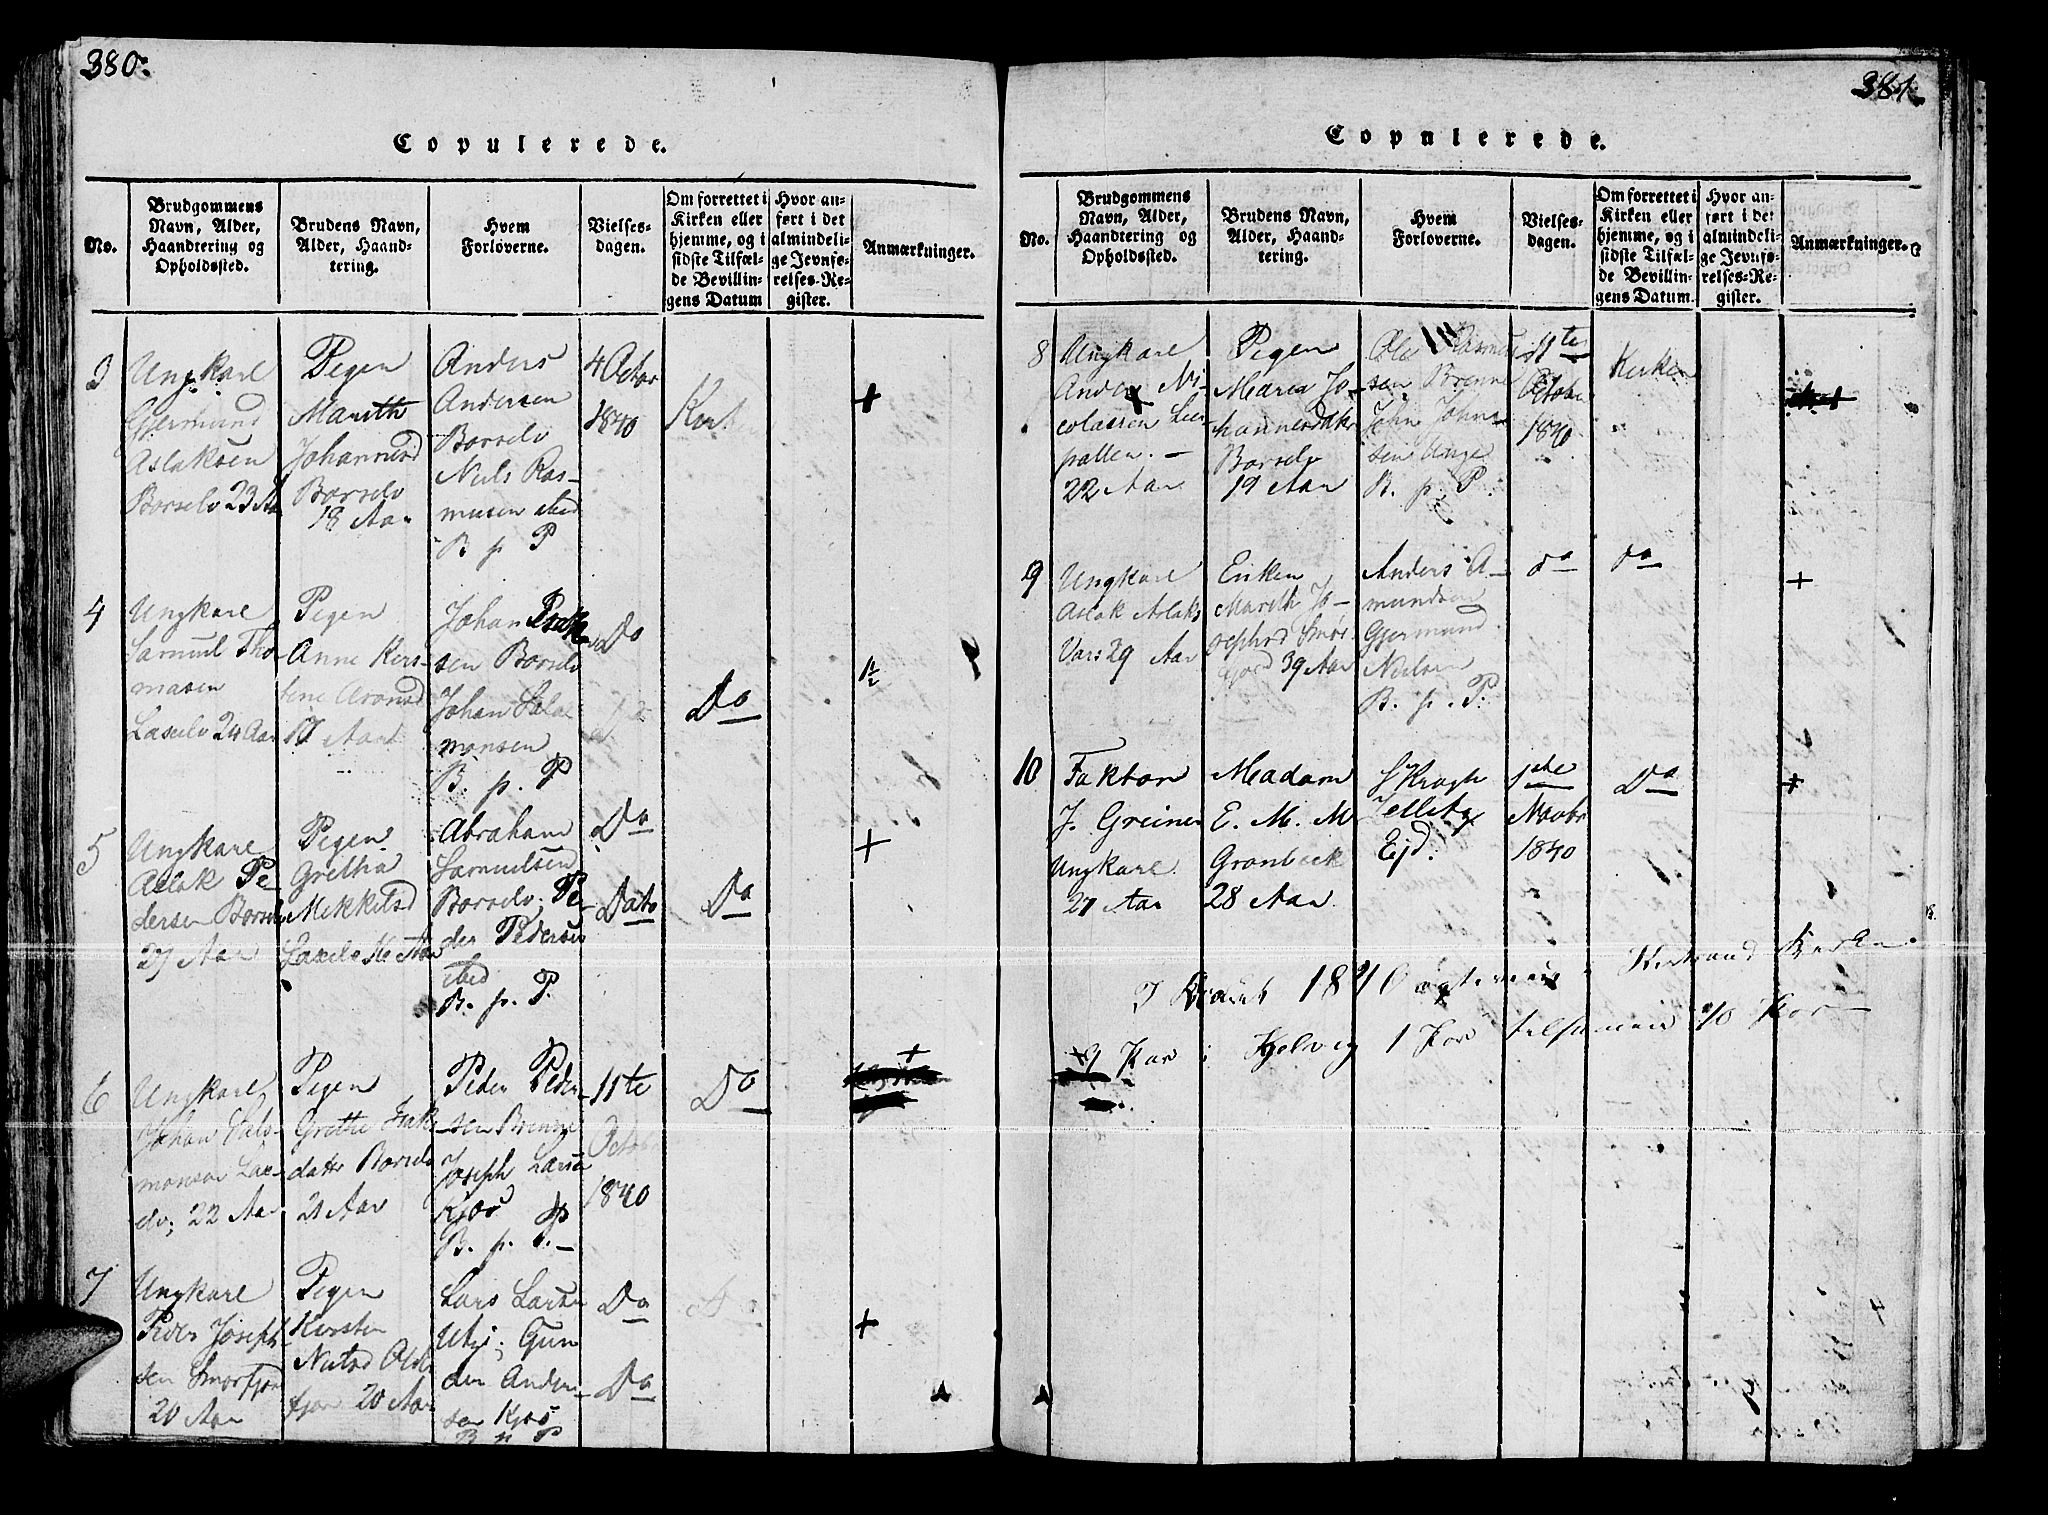 380.
Copulerede.
No.
Brudgommens
Navn, Alder,
Haandtering og
Opholdssted.
Brudens Navn,
Alder, Haand-
tering.
Hvem
Forloverne.
Vielses-
dagen.
Om forrettet i
Kirken eller
hjemme, og i
sidste Tilfæl-
de Bevillin-
gens Datum
Hvor an-
ført i det
almindeli-
ge Jevnfø-
relses-Re-
gister.
Anmærkninger.
3
Ungkarl
Gjermund
Aslaksen
Borselv 23 Aar
Pigen
Marith
Johannesd
Borselv
18 Aar
Anders
Andersen
Borselv
Niels Ras-
musen ibid
B p P
4 Octor
1840
Kirken
+
4
Ungkarl
Samuel Tho-
masen
Laxelv 24 Aar
Pigen
Anne Kirs-
tine Aronsd
17 Aar
Johan Isak-
sen Borselv
Johan Salo
monsen
B. p. P
Do
Do
1/2
5
Ungkarl
Aslak Pe-
dersen Borselv
27 Aar
Pigen
Gretha
Mikkelsd
Laxelv Aar
Abraham
Samuelsen
Borselv; Pe-
der Pedersen
ibid
B. p. P.
Do
Dato
Do
+
6
Ungkarl
Johan Salo-
monsen Lax-
elv; 22 Aar
Pigen
Grethe Isak
datter Borselv
21 Aar
Peder Peder-
sen Brenne
Joseph Larsen
Kjøs
B. p. P.
11te
Octor
1840
Do
+
7
Ungkarl
Peder Joseph-
sen Smørfjor
20 Aar
Pigen
Kirsten
Nielsd Older
fjor 20 Aar
Lars Larsen
Utgj; Gun
der Ander-
sen Kjøs
B p P
Do
Do
+
381.
Copulerede.
No.
Brudgommens
Navn, Alder,
Haandtering og
Opholdssted.
Brudens Navn,
Alder, Haand-
tering.
Hvem
Forloverne.
Vielses-
dagen.
Om forrettet i
Kirken eller
hjemme, og i
sidste Tilfæl-
de Bevillin-
gens Datum.
Hvor an-
ført i det
almindeli-
ge Jevnfø-
relses-Re-
gister.
Anmærkninger.
8
Ungkarl
Anders Ni-
colaisen Leir-
pollen. –
22 Aar
Pigen
Maria Jo-
hannesdatr
Borselv
19 Aar
Ole Rasmus
sen Brenne
John John-
sen Unge
B. p. P.
11te
Octobr
1840
Kirken
9
Ungkarl
Aslak Aslaks
Vars 29 Aar
Enken
Marith Jo-
sephsd Smør-
fjord 39 Aar
Anders A-
mundsen
Gjermund
Nielsen
B. p. P.
do
do
+
10
Faktor
J. Greiner
Ungkarl
27 Aar
Madam
E. M. M
Grønbeck
28 Aar
Krogh
Ejd.
1ste
Novbr
1840
Do
+
I Kraint 1840 ægteviet i Kistrand Kirke
9 Par i Kjelvig 1 Par tilsammen 10 Par